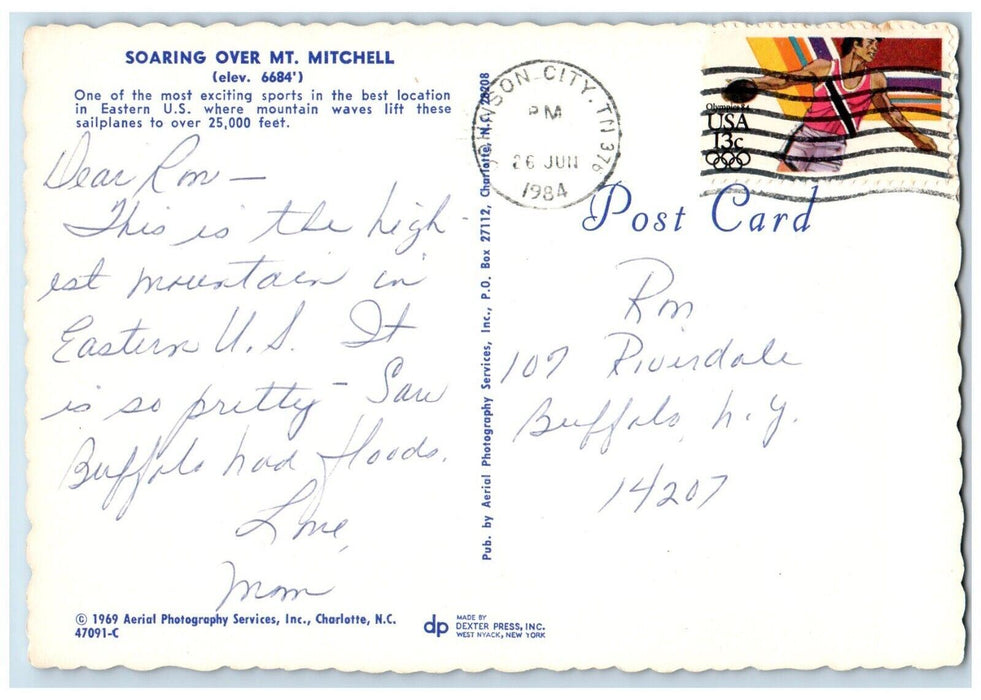 SOARING OVER MT. MITCHELL
(elev. 6684')
One of the most exciting sports in the best location
in Eastern U.S. where mountain waves lift these
sailplanes to over 25,000 feet.
Dear Ron —
This is the high
est mountain in
Eastern U.S. It
is so pretty - Saw
Buffalo had floods.
Love,
Mom
© 1969 Aerial Photography Services, Inc., Charlotte, N.C.
47091-C
Pub. by Aerial Photography Services, Inc., P.O. Box 27112, Charlotte, N.C. 28208
dp
MADE BY
DEXTER PRESS, INC.
WEST NYACK, NEW YORK
JOHNSON CITY, TN 376
PM
26 JUN
1984
Olympics 84
USA
13c
Post Card
Ron
107 Riverdale
Buffalo, N.Y.
14207